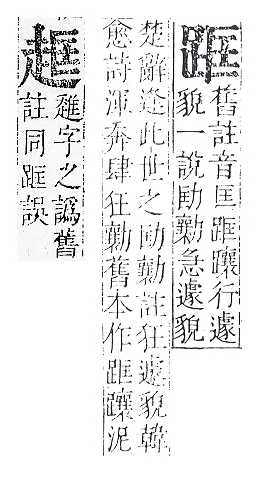 䟫
舊註音匡䟫躟行遽
貌一說劻勷急遽貌
楚辭逢此世之劻勷註狂遽貌韓
愈詩渾奔肆狂勷舊本作䟫躟泥
字之譌舊
註同䟫誤